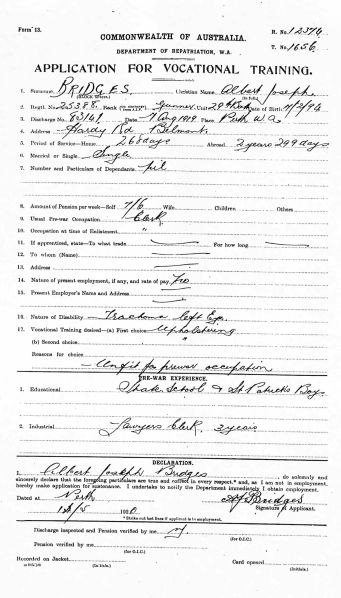 Form 13.
R. No. 12376
COMMONWEALTH OF AUSTRALIA.
T. No. 1656
DEPARTMENT OF REPATRIATION, W.A.
APPLICATION FOR VOCATIONAL TRAINING.
1. Surname BRIDGES Christian Name Albert Joseph
(BLOCK letters) (In full)
2. Regtl. No. 25388 Rank Gunner Unit Date of Birth
3. Discharge No. 83141 Date 7 Aug 1919 Place Perth W.A.
4. Address Hardy Rd Belmont
5. Period of Service—Home 268 days Abroad 2 years 299 days
6. Married or Single Single
7. Number and Particulars of Dependants nil
8. Amount of Pension per week—Self 7/6 Wife Children Others
9. Usual Pre-war Occupation Clerk
10. Occupation at time of Enlistment "
11. If apprenticed, state—To what trade For how long
12. To whom (Name)
13. Address
14. Nature of present employment, if any, and rate of pay
15. Present Employer's Name and Address
16. Nature of Disability Trachoma left Eye
17. Vocational Training desired—(a) First choice Upholstering
(b) Second choice "
Reasons for choice
Unfit for prewar occupation
PRE-WAR EXPERIENCE.
1. Educational State School & St Patricks Boys
2. Industrial Lawyers Clerk 3 years
DECLARATION.
I, Albert Joseph Bridges, do solemnly and
sincerely declare that the foregoing particulars are true and correct in every respect,* and, as I am not in employment,
hereby make application for sustenance. I undertake to notify the Department immediately I obtain employment.
Dated at Perth AJ Bridges
Signature of Applicant.
* Strike out last lines if applicant is in employment.
Discharge inspected and Pension verified by me
(for O.I.C.)
Pension verified by me
(for O.I.C.)
Recorded on Jacket Card opened
(Initials.) (Initials.)